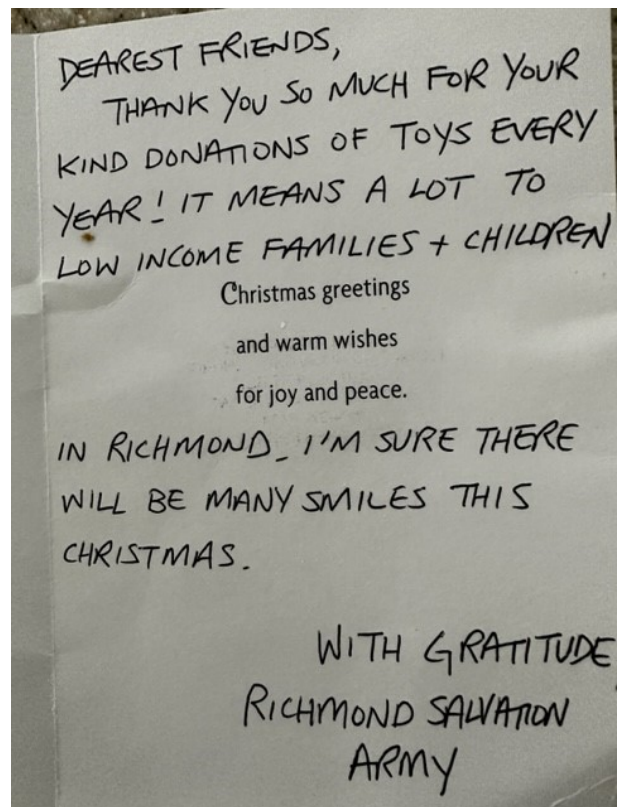 DEAREST FRIENDS,
THANK YOU SO MUCH FOR YOUR
KIND DONATIONS OF TOYS EVERY
YEAR! IT MEANS A LOT TO
LOW INCOME FAMILIES + CHILDREN
Christmas greetings
and warm wishes
for joy and peace.
IN RICHMOND_ I'M SURE THERE
WILL BE MANY SMILES THIS
CHRISTMAS.
WITH GRATITUDE
RICHMOND SALVATION
ARMY